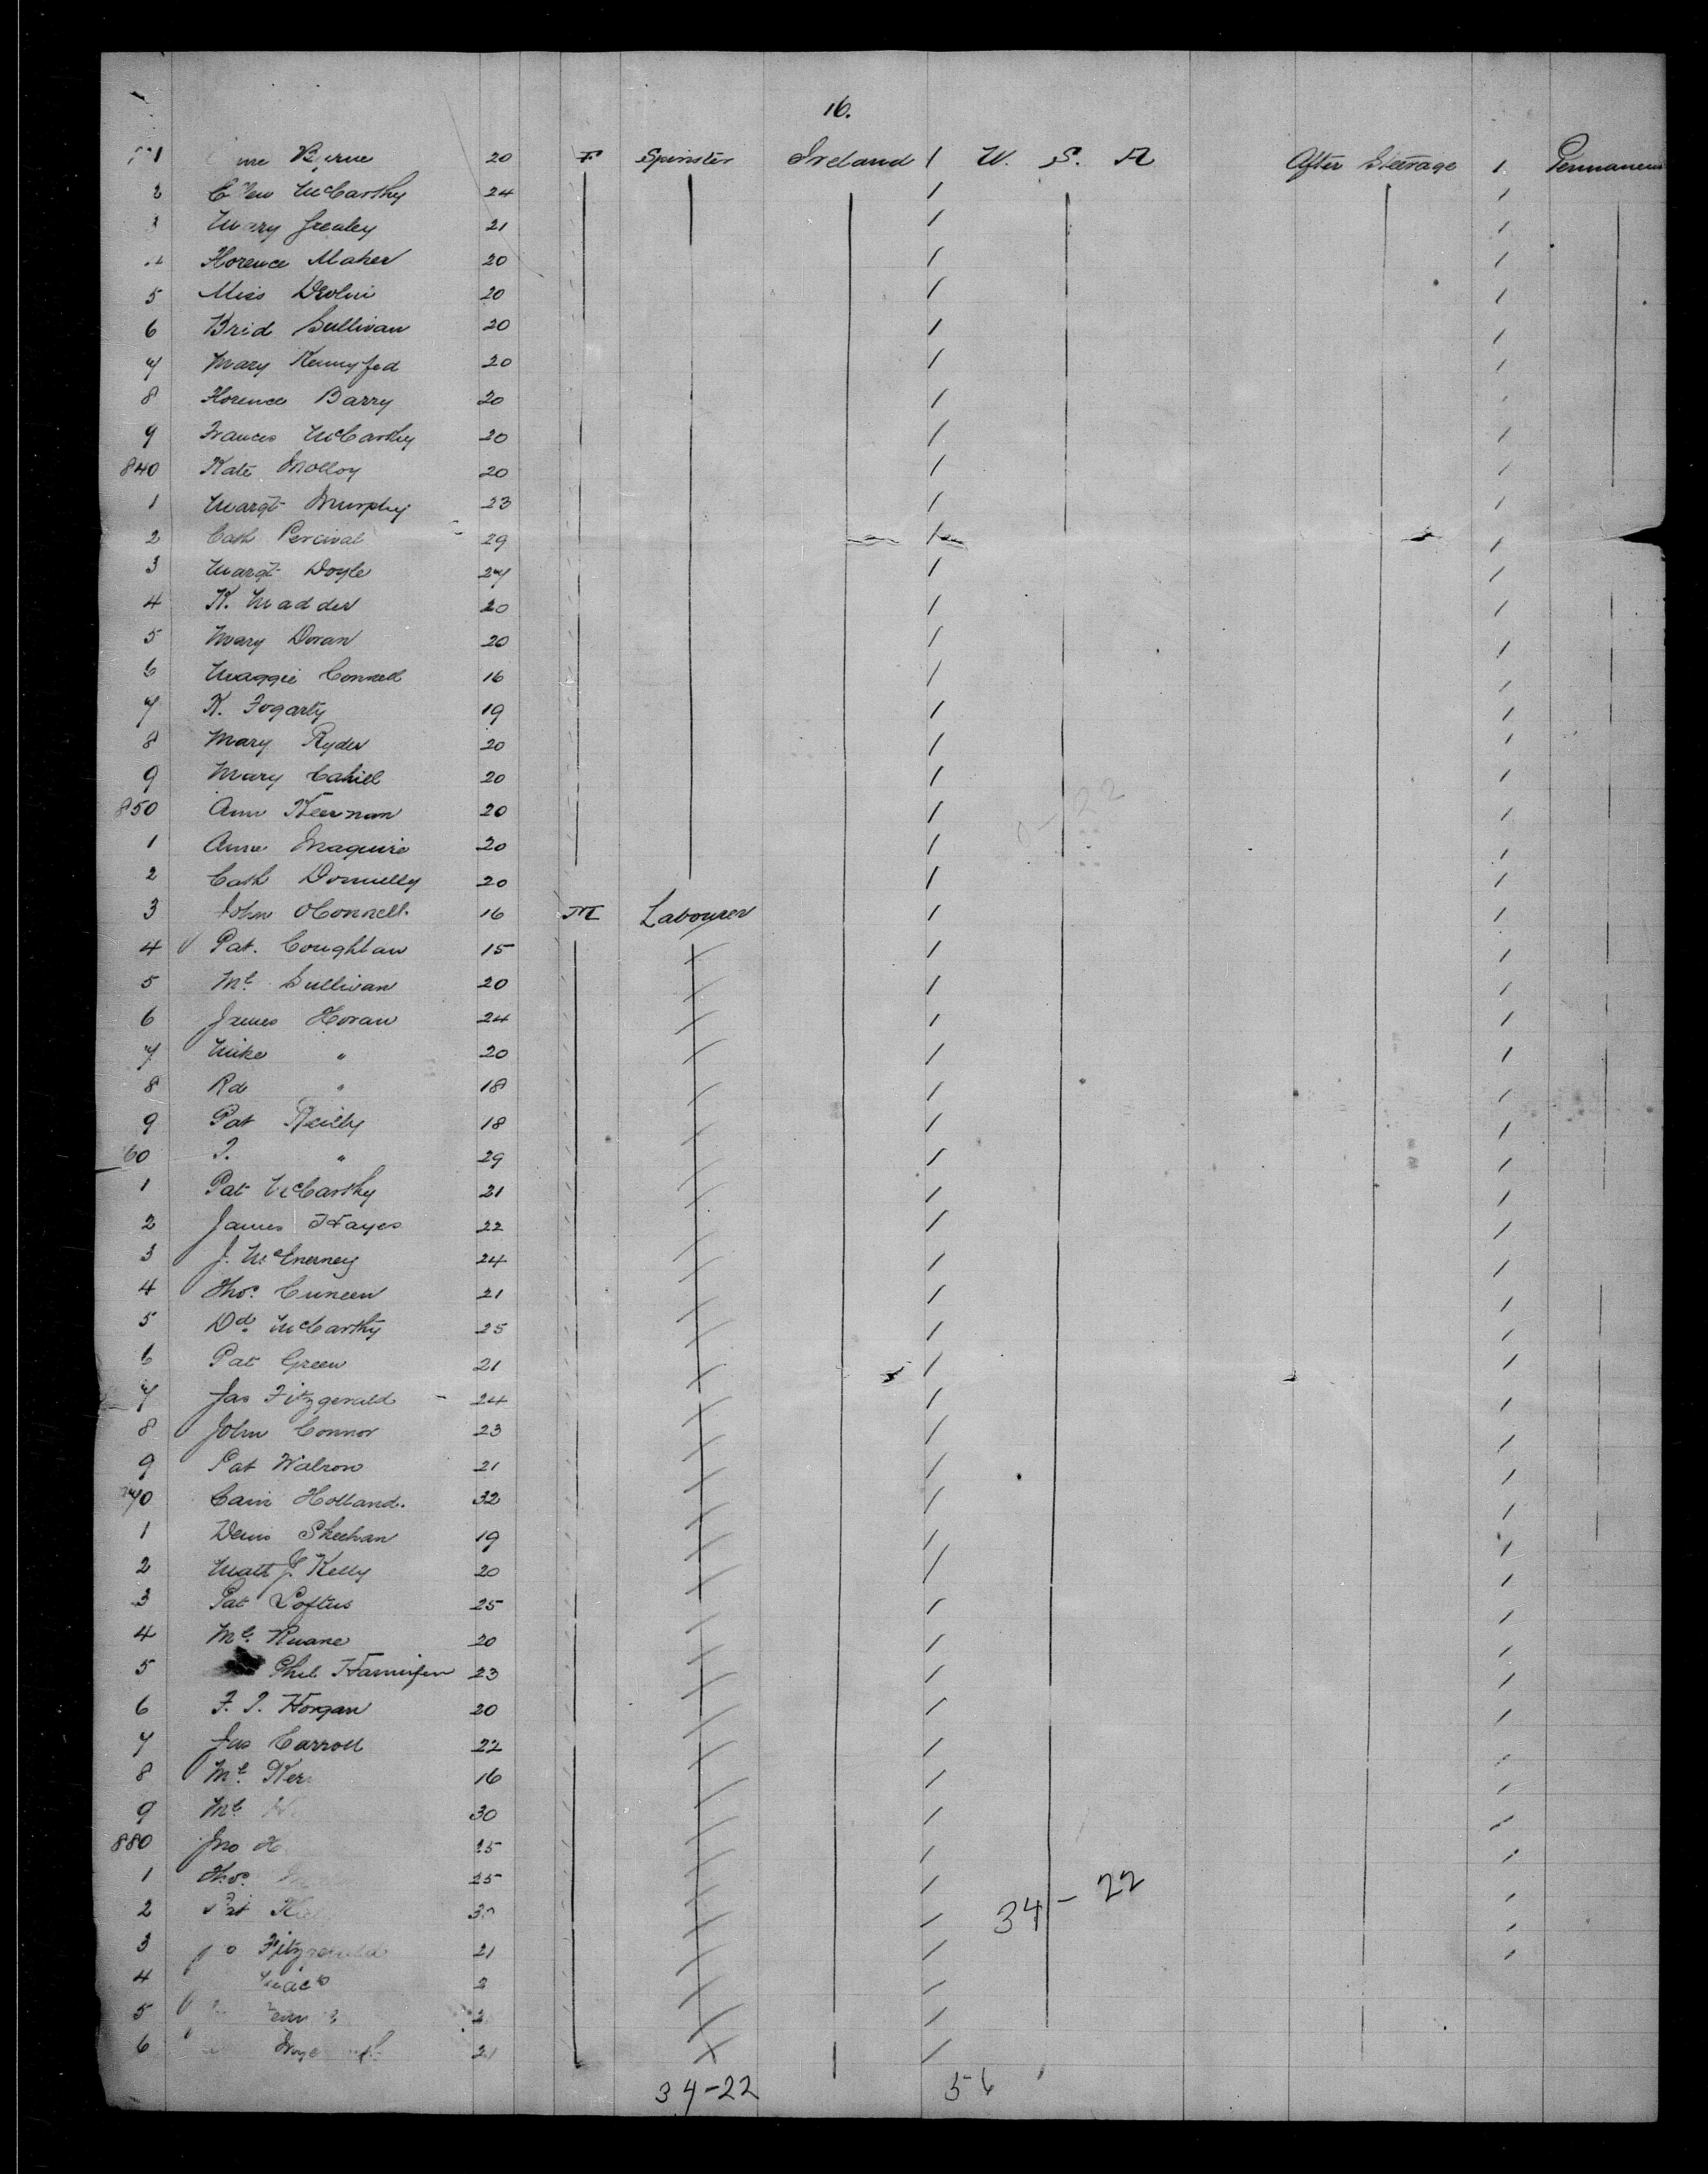 16.
1 Byrne 20 F Spinster Ireland / U. S. A After Steerage 1 Permanent
2 McCarthy 24 / /
Mary Grealey 21 / /
4 Florence Maher 20 / /
5 Miss Devlin 20 / /
6 Brid Sullivan 20 / /
7 Mary Kennyfed 20 / /
8 Florence Barry 20 / /
9 Frances McCarthy 20 / /
840 Kate Molloy 20 / /
1 Margt Murphy 23 / /
2 Cath Percival 29 / /
3 Margt Doyle 27 / /
4 K. Madden 20 / /
5 Mary Doran 20 / /
6 Maggie Connell 16 / /
7 K. Fogarty 19 / /
8 Mary Ryder 20 / /
9 Mary Cahill 20 / /
850 Ann Keernan 20 / /
1 Anne Maguire 20 / /
2 Cath Donnelly 20 / /
3 John OConnell. 16 M Labourer / /
4 Pat. Coughlan 15 / /
5 Ml Sullivan 20 / /
6 James Horan 24 / /
7 Mike " 20 / /
8 Rd " 18 / /
9 Pat Reilly 18 / /
60 T. " 29 / /
1 Pat McCarthy 21 / /
2 James Hayes 22 / /
3 J. McEnerney 24 / /
4 Thos. Cuneen 21 / /
5 Dd. McCarthy 25 / /
6 Pat Green 21 / /
7 Jas Fitzgerald 24 / /
8 John Connor 23 / /
9 Pat Walron 21 / /
70 Holland. 32 / /
1 Denis Sheehan 19 / /
2 Matt J. Kelly 20 / /
3 Pat Loftus 25 / /
4 Ml. Ruane 20 / /
5 Phil Hannifen 23 / /
6 F. T. Horgan 20 / /
7 Jas Carroll 22 / /
8 Ml. 16 / /
9 Ml. 30 / /
880 Jno 25 / /
1 Thos. 25 / /
2 Pat 30 / 34 - 22 /
3 Fitzgerald 21 / /
4 /
5 /
6 21 /
34-22 56